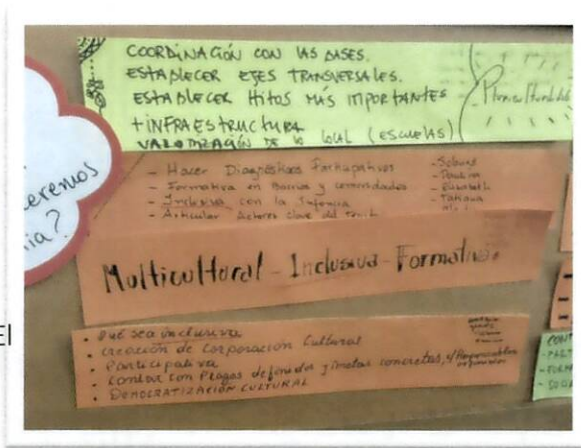 COORDINACIÓN CON LAS BASES.
ESTABLECER EJES TRANSVERSALES.
ESTABLECER HITOS MÁS IMPORTANTES
+ INFRAESTRUCTURA
VALORIZACIÓN DE LO LOCAL (ESCUELAS)
eremos
ia?
- Hacer Diagnósticos Participativos
- Formativa en Barrios y comunidades
- Inclusiva con la Infancia
- Articular Actores clave del
- Paulina
- Elizabeth
- Tatiana
Multicultural - Inclusiva - Formativa
• Qué sea inclusiva
• creación de Corporación Cultural
• Participativa
• Contar con Plazos definidos y metas concretas, y Responsables
• DEMOCRATIZACIÓN CULTURAL
El